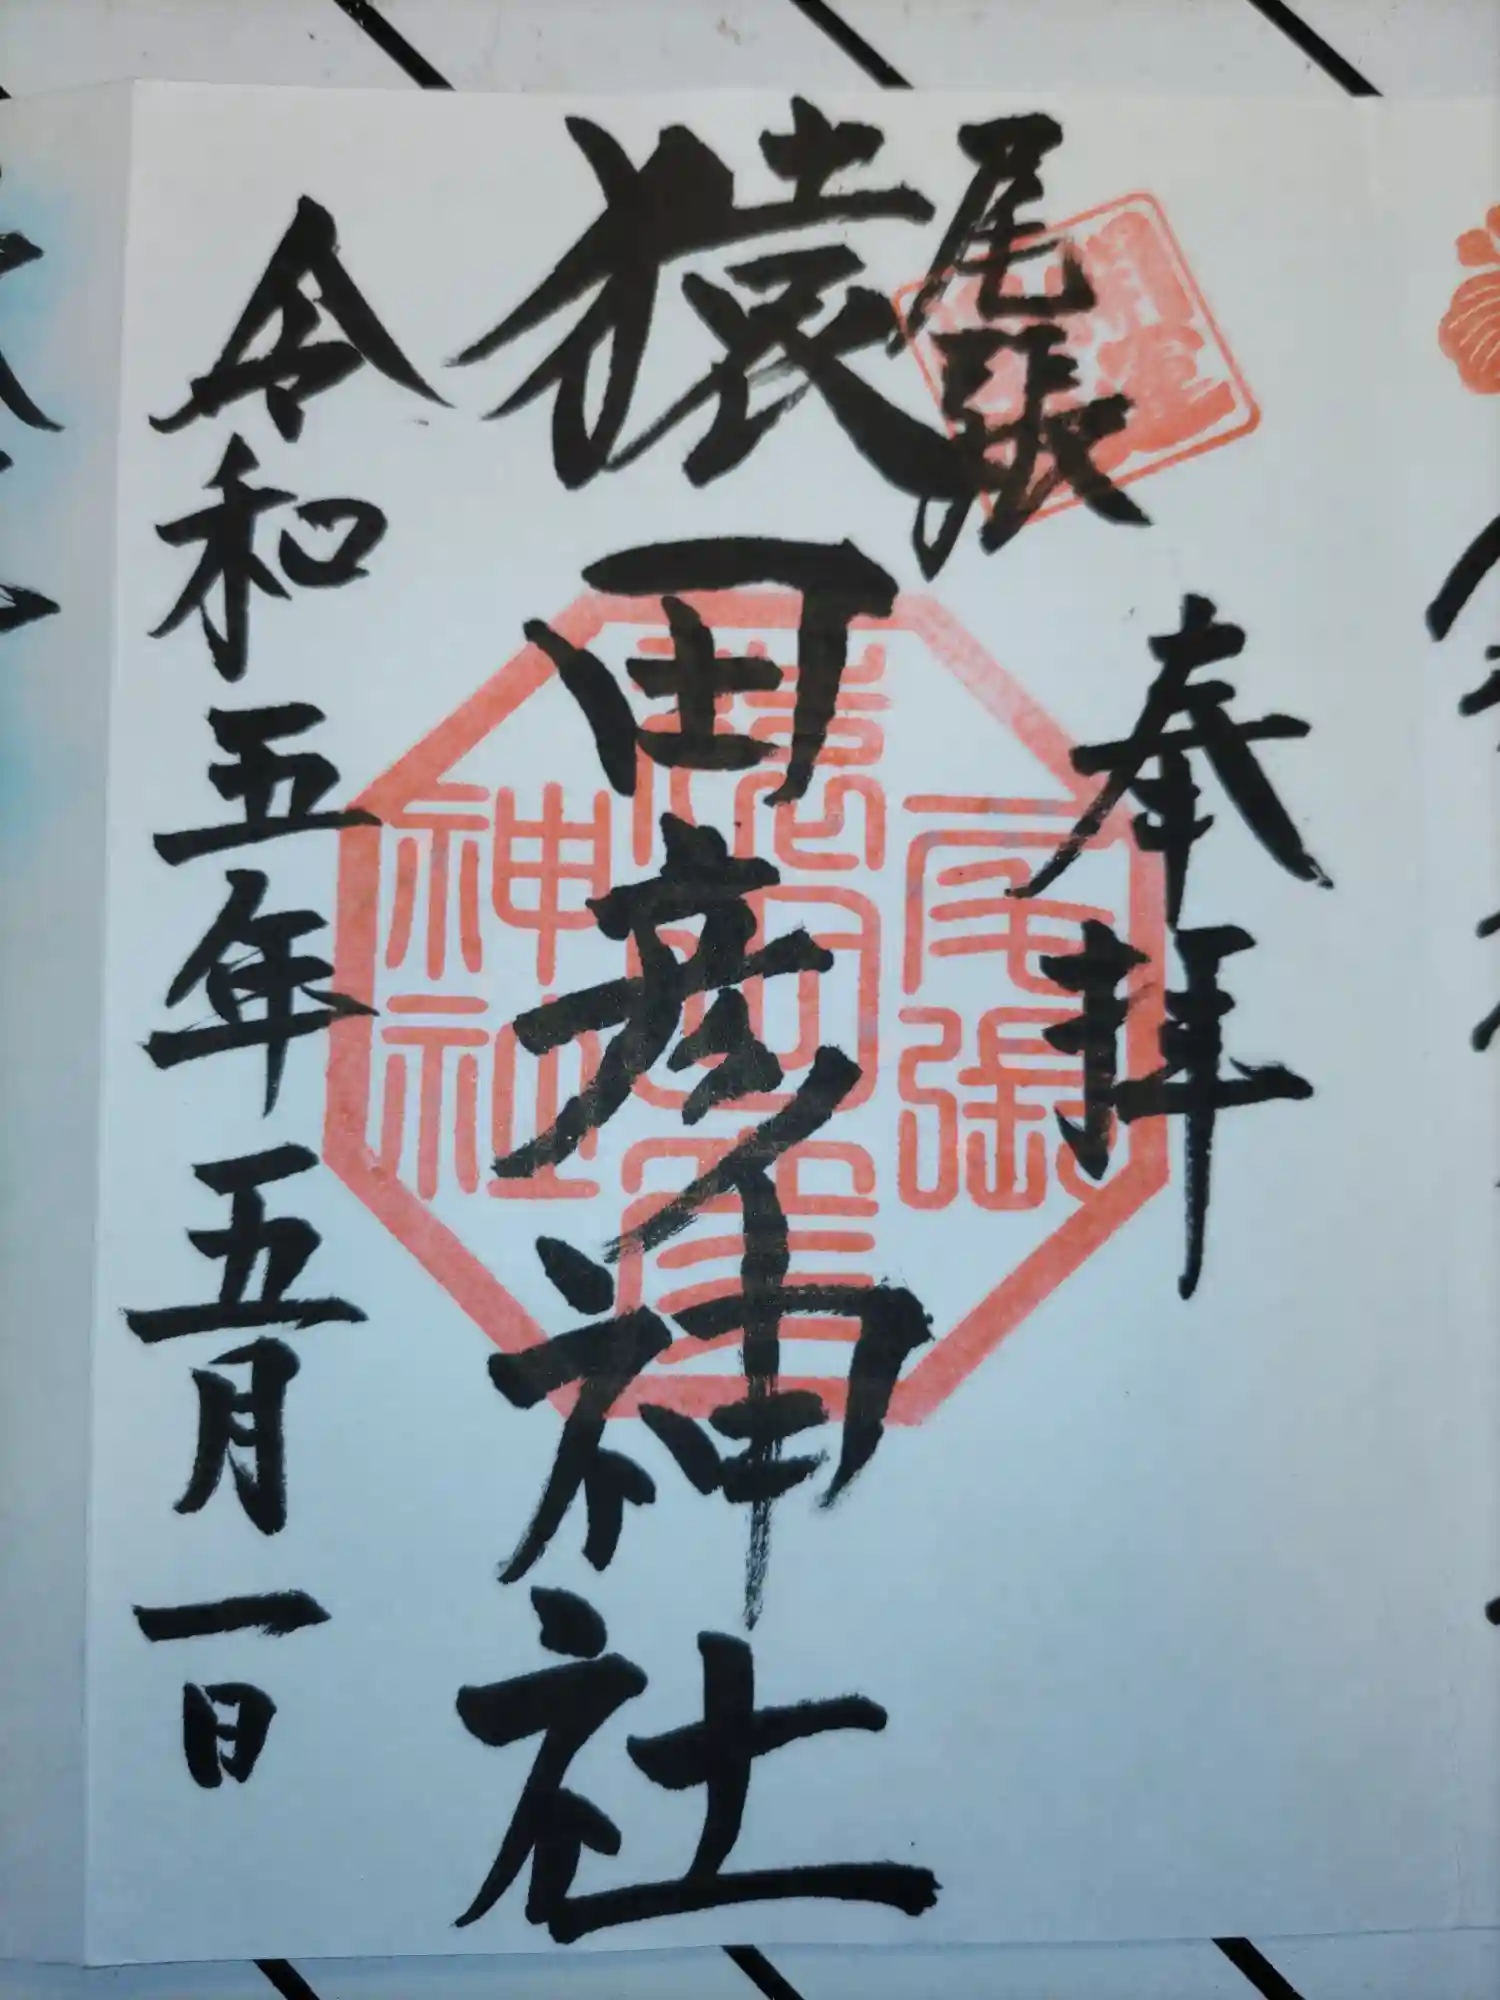 尾張
奉拝
猿田彦神社
令和五年五月一日
尾張
猿田彦
神社